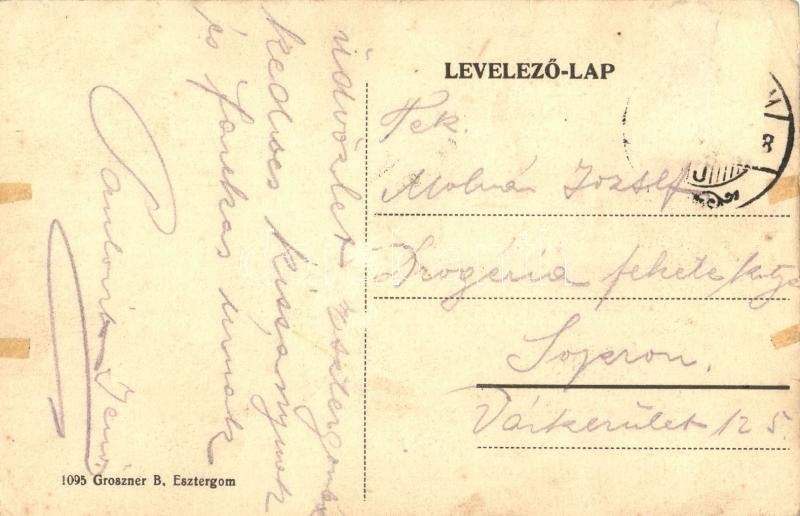 LEVELEZŐ-LAP
Tek.
Molnár József
Drogéria fekete
Sopron.
Várkerület 125
üdvözlet Esztergomból
Kedves kisanyunak
és Farkas úrnak
Jenő
1095 Groszner B. Esztergom